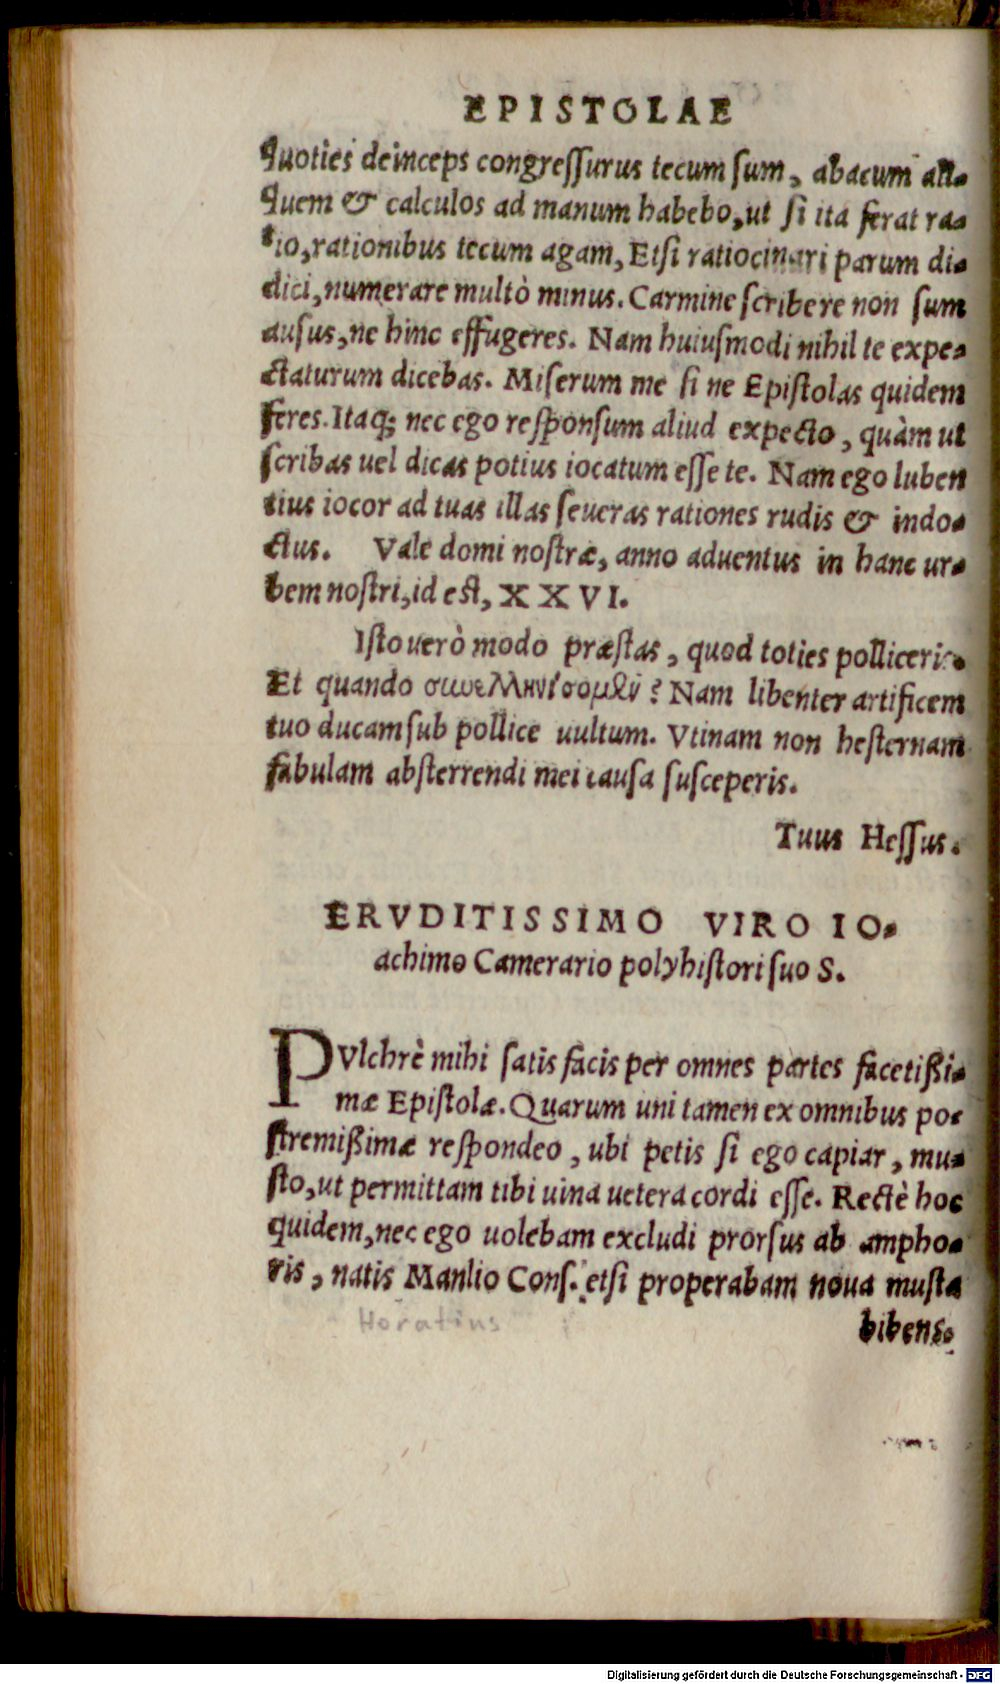 EPISTOLAE
Quoties deinceps congreſſurus tecum ſum, abacum ali-
quem & calculos ad manum habebo, ut ſi ita ferat ra-
tio, rationibus tecum agam, Etſi ratiocinari parum di-
dici, numerare multò minus. Carmine ſcribere non ſum
auſus, ne hinc effugeres. Nam huiuſmodi nihil te expe-
ctaturum dicebas. Miſerum me ſi ne Epiſtolas quidem
feres. Itaq; nec ego reſponſum aliud expecto, quàm ut
ſcribas uel dicas potius iocatum eſſe te. Nam ego luben
tius iocor ad tuas illas ſeueras rationes rudis & indo-
ctus. Vale domi noſtræ, anno aduentus in hanc ur-
bem noſtri, id eſt, XXVI.
Iſto uerò modo præſtas, quod toties polliceris.
Et quando ? Nam libenter artificem
tuo ducam ſub pollice uultum. Vtinam non heſternam
fabulam abſterrendi mei cauſa ſuſceperis.
Tuus Heſſus.
ERVDITISSIMO VIRO IO-
achimo Camerario polyhiſtori ſuo S.
PVlchrè mihi ſatis facis per omnes partes facetißi-
mæ Epiſtolæ. Quarum uni tamen ex omnibus po-
ſtremißimæ reſpondeo, ubi petis ſi ego capiar, mu-
ſto, ut permittam tibi uina uetera cordi eſſe. Rectè hoc
quidem, nec ego uolebam excludi prorſus ab ampho-
ris, natis Manlio Conſ. etſi properabam noua muſta
Horatius
bibens.
Digitalisierung gefördert durch die Deutsche Forschungsgemeinschaft - DFG